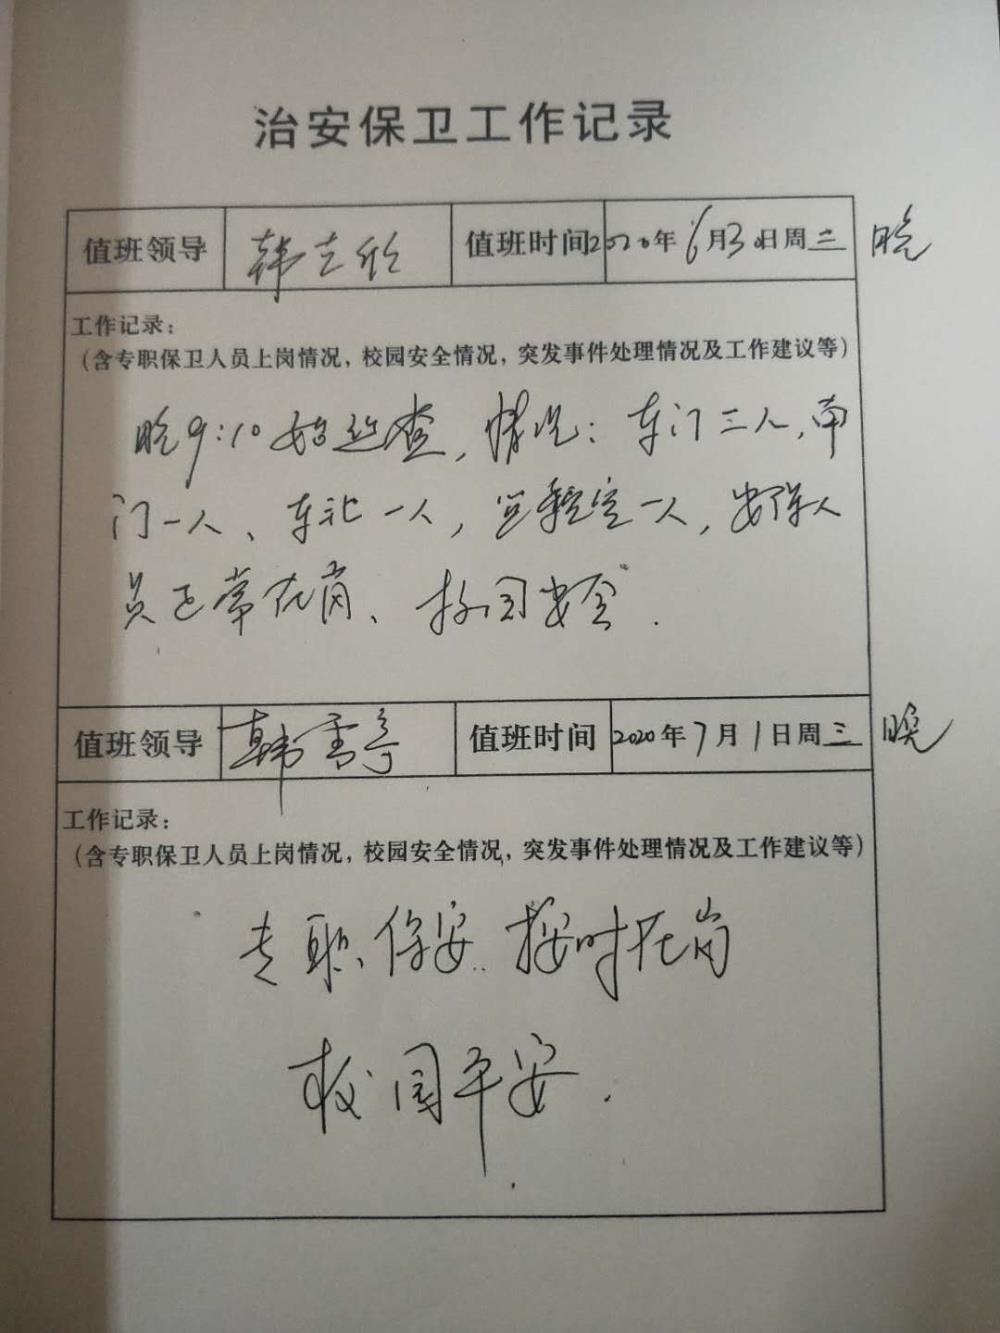 治安保卫工作记录
值班领导 韩 值班时间 2020年6月30日周三 晚
工作记录：
（含专职保卫人员上岗情况，校园安全情况，突发事件处理情况及工作建议等）
晚9:10始巡查，情况：东门三人，南
门一人、东北一人，监控室一人，安保人
员正常在岗、校园安全.
值班领导 韩雪 值班时间 2020年7月1日周三 晚
工作记录：
（含专职保卫人员上岗情况，校园安全情况，突发事件处理情况及工作建议等）
专职保安.按时在岗
校园平安.